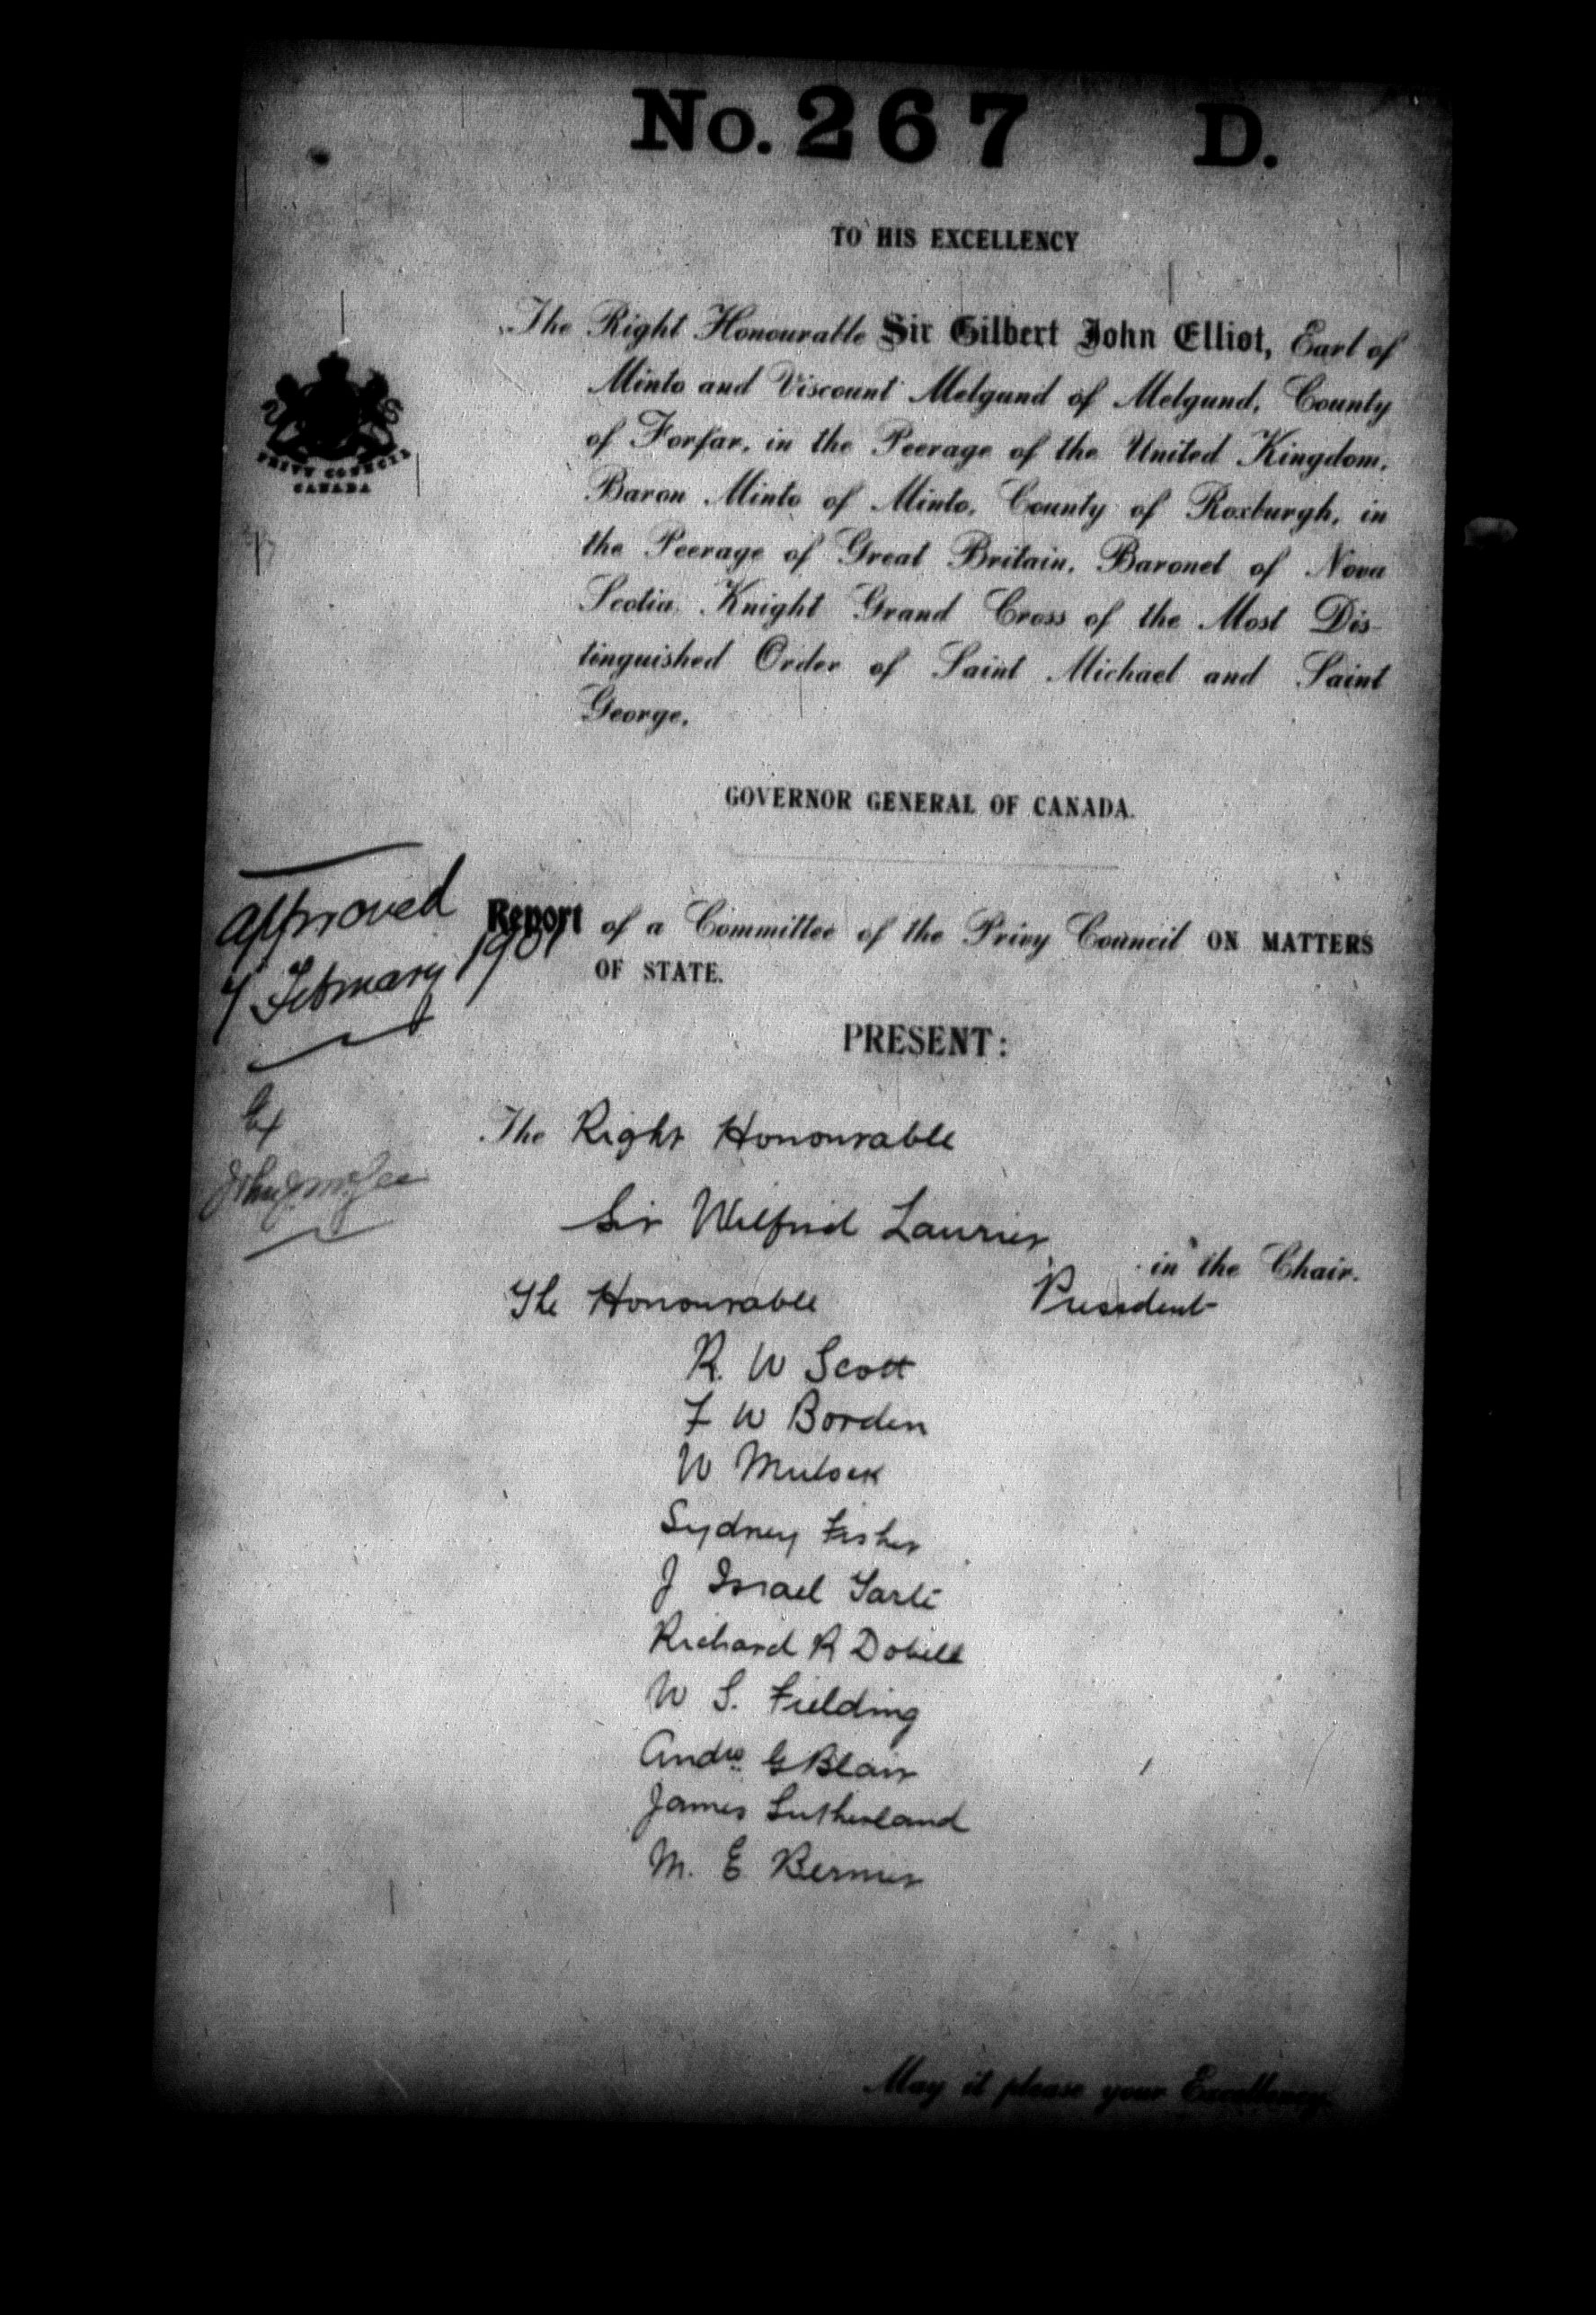 No. 267 D.
TO HIS EXCELLENCY
The Right Honourable Sir Gilbert John Elliot, Earl of
Minto and Viscount Melgund of Melgund, County
of Forfar, in the Peerage of the United Kingdom,
Baron Minto of Minto, County of Roxburgh, in
the Peerage of Great Britain, Baronet of Nova
Scotia, Knight Grand Cross of the Most Dis-
tinguished Order of Saint Michael and Saint
George,
PRIVY COUNCIL
CANADA
GOVERNOR GENERAL OF CANADA.
approved
February 1901
Report of a Committee of the Privy Council ON MATTERS
OF STATE.
PRESENT:
The Right Honourable
Sir Wilfrid Laurier
in the Chair.
The Honourable President
R. W Scott
F W Borden
W Mulock
Sydney Fisher
J Israel Tarte
Richard R Dobell
W S. Fielding
Andw G Blair
James Sutherland
M. E Bernier
May it please your Excellency.